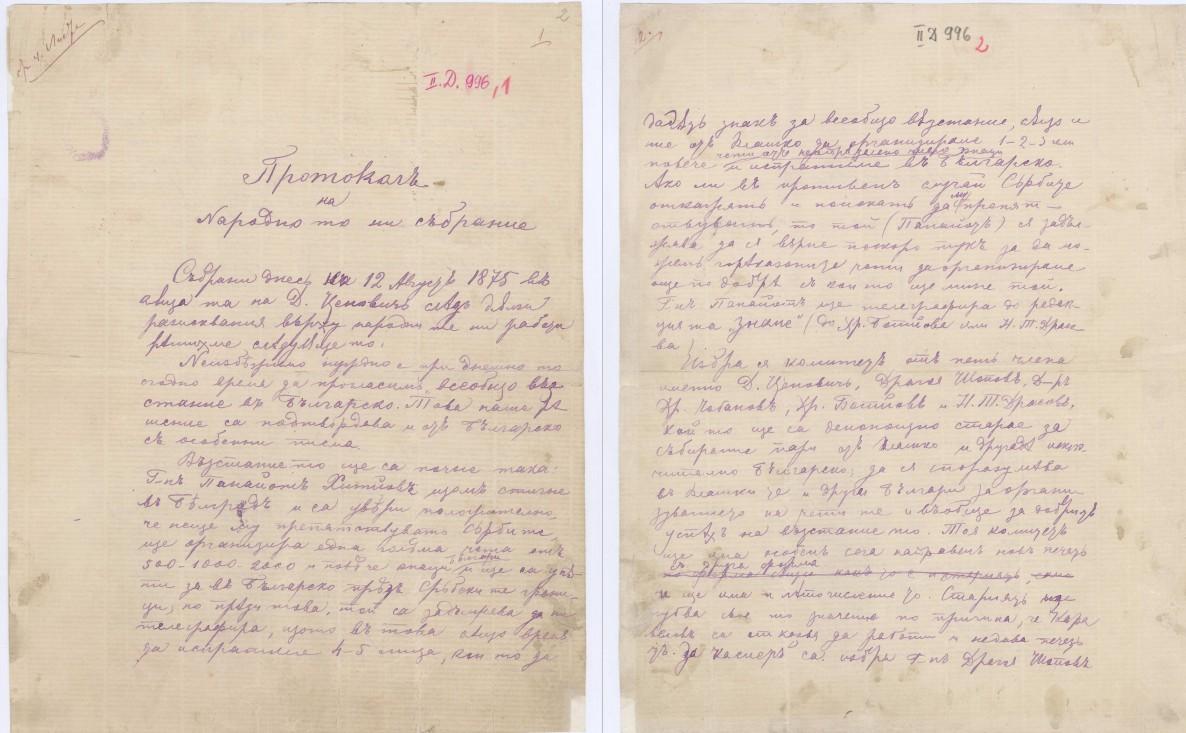 2
1
II. Д. 996,1
Протоколъ
на
Народно то ни събрание
Събрани днесъ на 12 Августъ 1875 въ
къща та на Д. Ценовичъ следъ
разисквания върху народни те ни работи
рѣшихме следующе то:
Неизбѣжно нуждно е при днешно то
сгодно время да прогласимъ всеобщо въз
стание въ Българско. Това наше рѣ
шение са подтвърдева и отъ Българско
съ особенни писма.
Възстание то ще са почне така:
Г-нъ Панайотъ Хитовъ щомъ стигне
въ Бѣлградъ и са увѣри положително,
че неще му препятствуватъ Сърбите,
ще организира една голѣма чета отъ
500-1000-2000 и повѣче юнаци българи и ще са упѫ-
ти за въ Българско прѣзъ Сръбски те грани-
ци; но прѣди това, той са задължева да ни
телеграфира, щото въ това също време
да испратиме 4-5 лица, кои то да
2.
II Д 996 2
дадѫтъ знакъ за всеобщо възстание, също и
ние отъ Влашко да организираме 1-2-3 или
повече чети отъ юнаци
и испратиме въ Българско.
Ако ли въ противенъ случай Сърбите
откажѫтъ и поискатъ да му препят-
ствуватъ, то той (Панайотъ) ся задъл-
жава да ся върне поскоро тукъ за да мо-
жемъ горѣказанните чети да организираме
още по добрѣ съ кои то ще мине той.
Г-нъ Панайотъ ще телеграфира до редак-
ция та „Знаме" (до Хр. Ботйова или И. Т. Драсо-
ва)
Избра ся комитетъ отъ петь члена
именно Д. Ценовичъ, Драгоя Шоповъ, Д-ръ
Хр. Чобановъ, Хр. Ботйовъ и И. Т. Драсовъ,
кой то ще са денонощно старае за
събирание пари отъ Влашко и другадѣ исклю-
чително Българско; да ся споразумѣва
съ Влашки те и други Българи за органи
зуванието на чети те и въобще за добриятъ
успѣхъ на възстание то. Тоя комитетъ
ще има особенъ сега направенъ новъ печатъ
съ друга форма
и ще има и лѣточисление то. Стариятъ
губва свое то значение по причина, че Кара
веловъ са отказа да работи и недава печатъ
тъ. За касиеръ са избра Г-нъ Драгоя Шоповъ